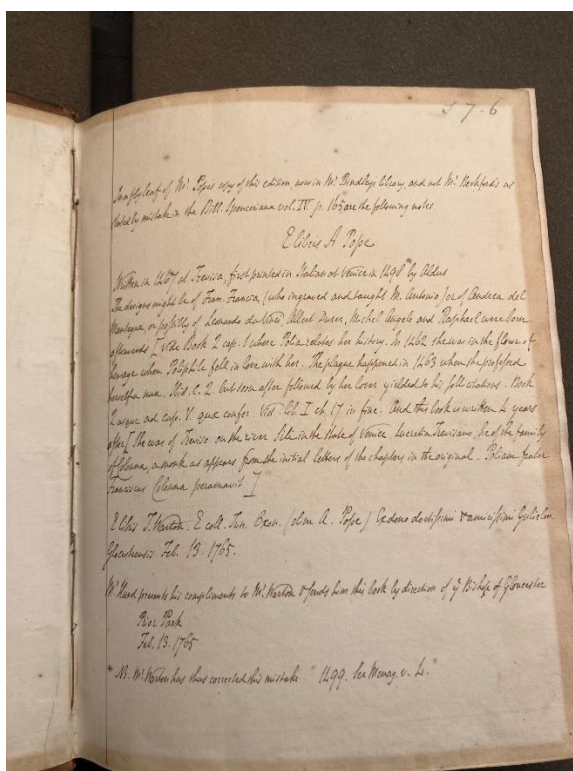 S 7-6
In a flyleaf of Mr Popes copy of this edition, now in Mr Bindleys library, and not Mr Beckford's as
stated by mistake in the Bibl. Spenceriana vol. IV p. 165 are the following notes
E libris A Pope
Written in 1467 at Trevisa, first printed in Italian at Venice in 1498" by Aldus
The designs might be of Fran. Francia, (who ingraved and taught M. Antonio) or of Andrea del
Mantegna, or possibly of Leonardo da Vinci. Albert Durer, Michel Angelo and Raphael were born
afterwards [vide Book 2 cap. 1 where Polia relates her history. In 1462 she was in the flower of
her age when Poliphile fell in love with her. The plague happened in 1463 when she professed
herself a nun. Ibid. c. 2 but soon after followed by her lover yielded to his sollicitations. Book
2 usque ad cap. V. que confer. Vid. Lib. I ch 17 in fine. And this book is written 4 years
after] She was of Treviso on the river Sile in the State of Venice. Lucretia Trevisano, he of the family
of Colonna, a monk as appears from the initial letters of the chapters in the original. Poliam frater
Franciscus Colonna peramavit]
E libris T. Warton. E coll. Trin. Oxon. (olim A. Pope) Ex dono doctissimi & amicissimi Gulielmi
Glocestrensis Feb. 13. 1765.
Mr Hurd presents his compliments to Mr Warton & sends him this book by direction of ye Bishop of Gloucester
Prior Park
Feb. 13. 1765
" N. Mr Warton has thus corrected this mistake " 1499. See Menag. v. 4."